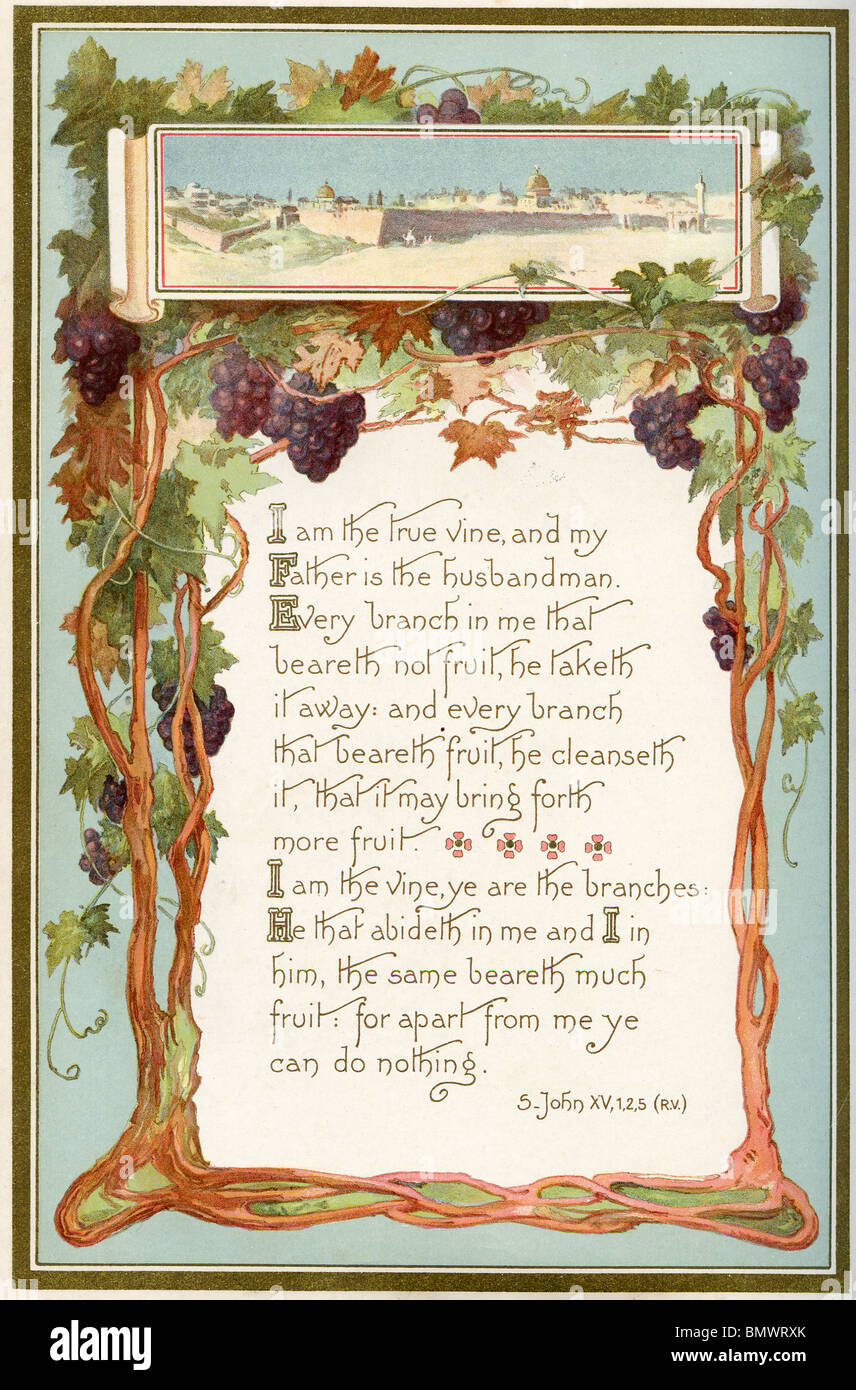 I am the true vine, and my
Father is the husbandman.
Every branch in me that
beareth not fruit, he taketh
it away: and every branch
that beareth fruit, he cleanseth
it, that it may bring forth
more fruit.
I am the vine, ye are the branches:
He that abideth in me and I in
him, the same beareth much
fruit: for apart from me ye
can do nothing.
S. John XV, 1, 2, 5 (R.V.)
alamy
Image ID: BMWRXK
www.alamy.com